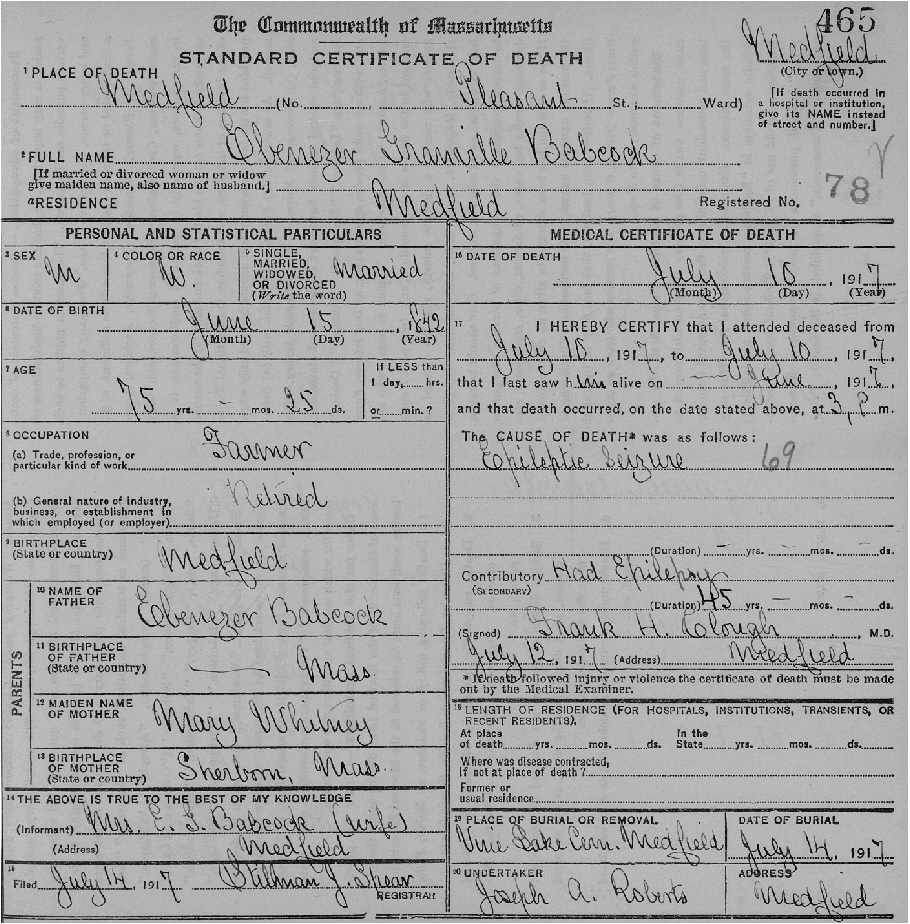 465
The Commonwealth of Massachusetts
STANDARD CERTIFICATE OF DEATH
Medfield
(City or town.)
1 PLACE OF DEATH
Medfield (No. , Pleasant St.; Ward)
[If death occurred in
a hospital or institution,
give its NAME instead
of street and number.]
2 FULL NAME Ebenezer Granville Babcock
[If married or divorced woman or widow
give maiden name, also name of husband.]
a RESIDENCE Medfield
Registered No. 78
PERSONAL AND STATISTICAL PARTICULARS
3 SEX
M
4 COLOR OR RACE
W.
5 SINGLE,
MARRIED,
WIDOWED,
OR DIVORCED
(Write the word)
Married
6 DATE OF BIRTH
June 15, 1842
(Month) (Day) (Year)
7 AGE
75 yrs. – mos. 25 ds.
If LESS than
1 day, hrs.
or min.?
8 OCCUPATION
(a) Trade, profession, or
particular kind of work
Farmer
(b) General nature of industry,
business, or establishment in
which employed (or employer)
Retired
9 BIRTHPLACE
(State or country)
Medfield
PARENTS
10 NAME OF
FATHER
Ebenezer Babcock
11 BIRTHPLACE
OF FATHER
(State or country)
Mass.
12 MAIDEN NAME
OF MOTHER
Mary Whitney
13 BIRTHPLACE
OF MOTHER
(State or country)
Sherborn, Mass.
14 THE ABOVE IS TRUE TO THE BEST OF MY KNOWLEDGE
(Informant) Mrs. E. G. Babcock (wife)
(Address) Medfield
15
Filed July 14, 1917 Stillman J. Spear
REGISTRAR
MEDICAL CERTIFICATE OF DEATH
16 DATE OF DEATH
July 10, 1917
(Month) (Day) (Year)
17
I HEREBY CERTIFY that I attended deceased from
July 10, 1917, to July 10, 1917,
that I last saw him alive on — June, 1917,
and that death occurred, on the date stated above, at 3 P m.
The CAUSE OF DEATH* was as follows:
Epileptic Seizure 69
(Duration) – yrs. – mos. – ds.
Contributory Had Epilepsy
(SECONDARY)
(Duration) 45 yrs. – mos. – ds.
(Signed) Frank H. Clough, M.D.
July 12, 1917 (Address) Medfield
* If death followed injury or violence the certificate of death must be made
out by the Medical Examiner.
18 LENGTH OF RESIDENCE (FOR HOSPITALS, INSTITUTIONS, TRANSIENTS, OR
RECENT RESIDENTS).
At place
of death yrs. mos. ds.
In the
State yrs. mos. ds.
Where was disease contracted,
if not at place of death?
Former or
usual residence
19 PLACE OF BURIAL OR REMOVAL
Vine Lake Cem. Medfield
DATE OF BURIAL
July 14, 1917
20 UNDERTAKER
Joseph A. Roberts
ADDRESS
Medfield